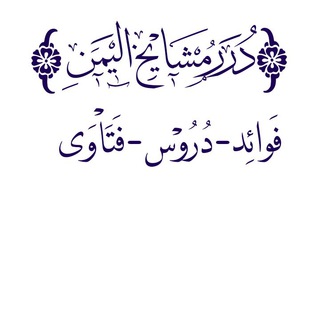 دُرَرُ مَشَايِخِ اليَمَنِ
فَوَائِد-دُرُوْس-فَتَاْوَى